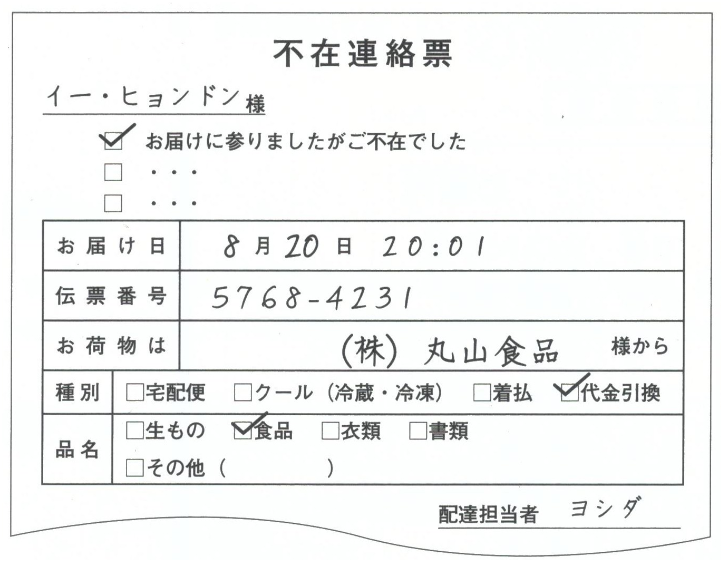 不在連絡票
イー・ヒョンドン様
☑ お届けに参りましたがご不在でした
□ ・・・
□ ・・・
お届け日 8月20日 20:01
伝票番号 5768-4231
お荷物は (株) 丸山食品 様から
種別 □宅配便 □クール（冷蔵・冷凍） □着払 ☑代金引換
品名 □生もの ☑食品 □衣類 □書類
□その他（ ）
配達担当者 ヨシダ